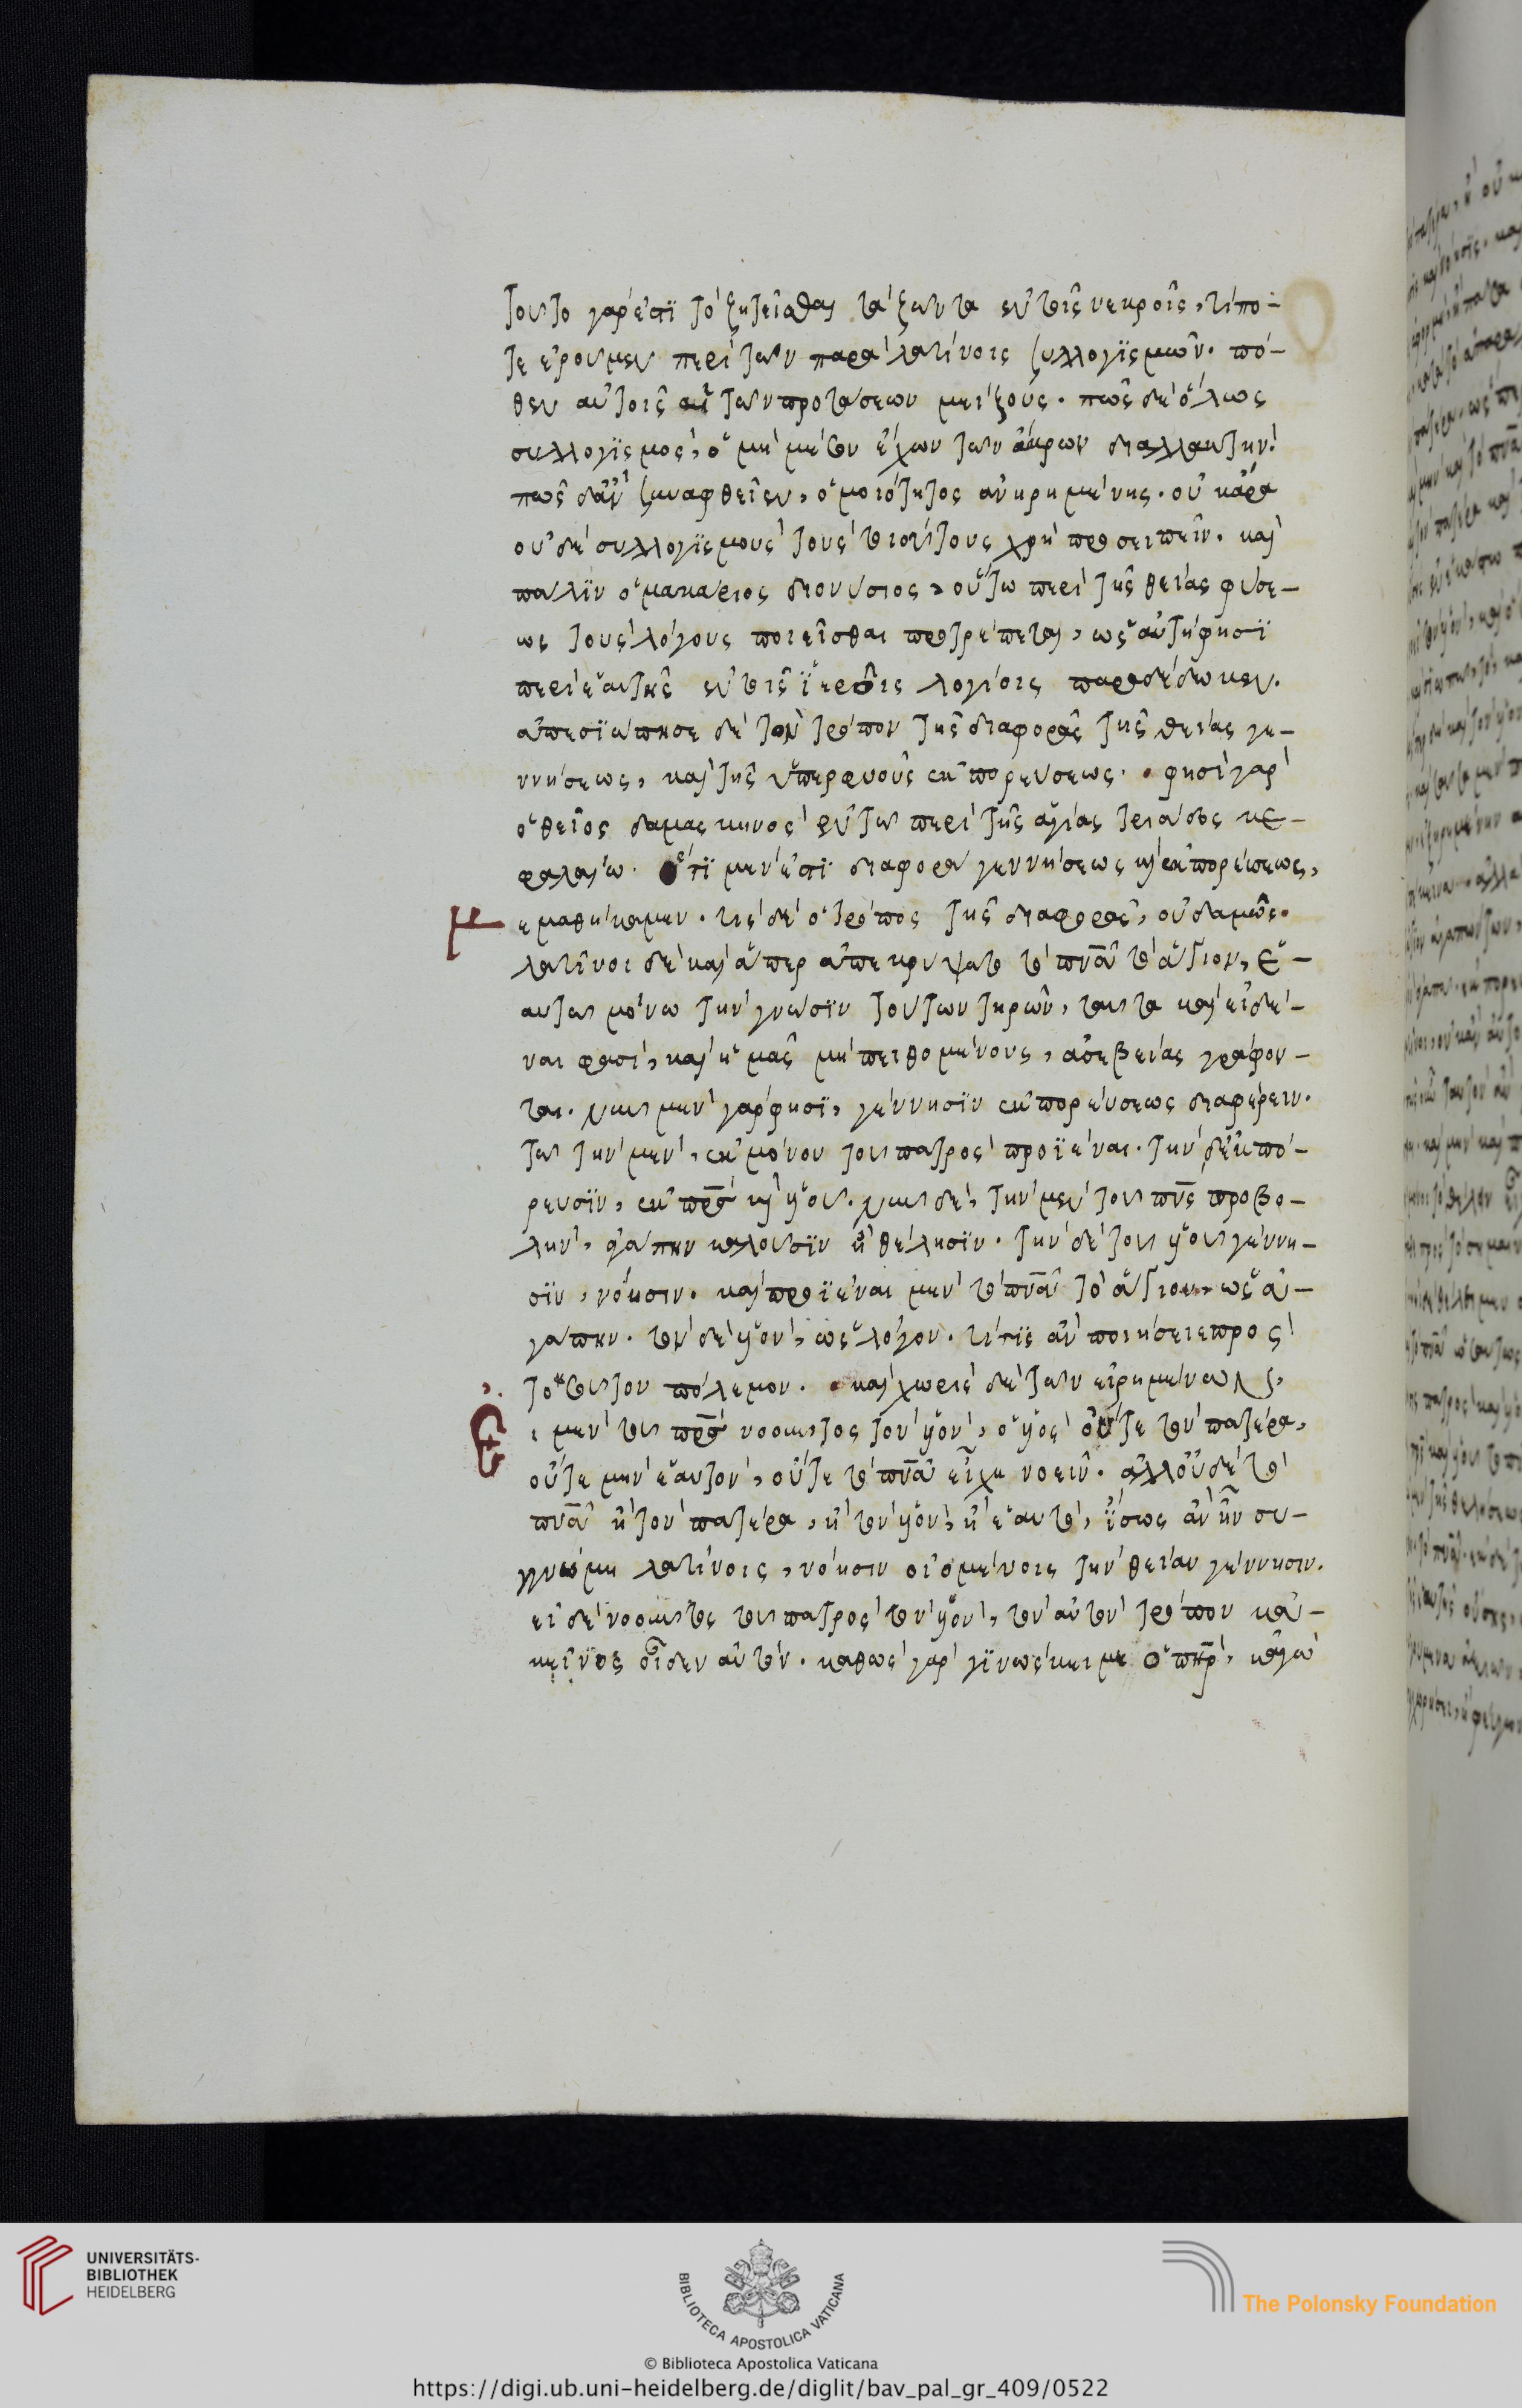 τοῦτο γάρ ἐστὶ τὸ ζητεῖσθαι τὰ ζῶντα ἐν τοῖς νεκροῖς, τί πο-
τε ἐροῦμεν περὶ τῶν παρὰ λατίνοις συλλογϊσμῶν. πό-
θεν αὐτοῖς αἱ τῶν προτάσεων μείζους. πῶς δὲ ὅλως
συλλογϊσμὸς, ὁ μὴ μέσον ἔχων τῶν ἄκρων διαλλακτήν.
πῶς δ' ἂν συναφθεῖεν, ὁμοιότητος ἀνηρημένης. οὐκ ἄρα
οὐδὲ συλλογϊσμοὺς τοὺς τοιούτους χρὴ προσειπεῖν. καὶ
πάλϊν ὁ μακάριος διονύσιος, οὕτω περὶ τῆς θείας φύσε-
ως τοὺς λόγους ποιεῖσθαι προτρέπεται, ὡς αὐτή φησϊ
περὶ ἑαυτῆς ἐν τοῖς ϊεροῖς λογίοις παραδέδωκεν.
ἀπεσϊώπησε δὲ τὸν τρόπον τῆς διαφορᾶς τῆς θείας γε-
ννήσεως, καὶ τῆς ὑπερφυοῦς ἐκπορεύσεως. φησὶ γὰρ
ὁ θεῖος δαμασκηνὸς ἐν τῶ περὶ τῆς ἁγίας τριάδος κε-
φαλαίω. ὅτϊ μὲν ἐστϊ διαφορὰ γεννήσεως κ(αὶ) ἐκπορεύσεως,
μεμαθήκαμεν. τίς δὲ ὁ τρόπος τῆς διαφορᾶς, οὐδαμῶς.
λατῖνοι δὲ καὶ ἅπερ ἀπεκρύψατο τὸ πνᾶ τὸ ἅγιον, ἑ-
αυτῶ μόνω τὴν γνῶσϊν τούτων τηρῶν, ταῦτα καὶ εἰδέ-
ναι φασὶ, καὶ ἡμᾶς μὴ πειθομένους, ἀσεβείας γράφον-
ται. νῦν μὲν γάρ φησϊ, γέννησϊν ἐκπορεύσεως διαφέρειν.
τῶ τὴν μὲν, ἐκ μόνου τοῦ πατρὸς προϊέναι. τὴν δ' ἐκπό-
ρευσϊν, ἐκ πρσ κ(αὶ) υἱοῦ. νῦν δὲ, τὴν μὲν τοῦ πνς προβο-
λὴν, ἀγάπην καλοῦσϊν ἢ θέλησϊν. τὴν δὲ τοῦ υἱοῦ γέννη-
σϊν, νόησιν. καὶ προϊέναι μὲν τὸ πνᾶ τὸ ἅγιον, ὡς ἀ-
γάπην. τὸν δὲ υἱὸν, ὡς λόγον. τί τϊς ἂν ποιήσειε πρὸς
τοσοῦτον πόλεμον. καὶ χωρὶς δὲ τῶν εἰρημένων,
εἰ μὲν τοῦ πρσ νοοῦντος τὸν υἱὸν, ὁ υἱὸς οὔτε τὸν πατέρα,
οὔτε μὴν ἑαυτὸν, οὔτε τὸ πνᾶ εἶχε νοεῖν. ἀλλ' οὐδὲ τὸ
πνᾶ ἢ τὸν πατέρα, ἢ τὸν υἱὸν, ἢ ἑαυτὸ, ἴσως ἂν ἦν συ-
γγνώμη λατίνοις, νόησιν οἰομένοις τὴν θείαν γέννησιν.
εἰ δὲ νοοῦντος τοῦ πατρὸς τὸν υἱὸν, τὸν αὐτὸν τρόπον κἀ-
κεῖνος οἶδεν αὐτόν. καθὼς γὰρ γϊνώσκει με ὁ πηρ, κἀγὼ
UNIVERSITÄTS-
BIBLIOTHEK
HEIDELBERG
BIBLIOTECA APOSTOLICA VATICANA
The Polonsky Foundation
© Biblioteca Apostolica Vaticana
https://digi.ub.uni-heidelberg.de/diglit/bav_pal_gr_409/0522